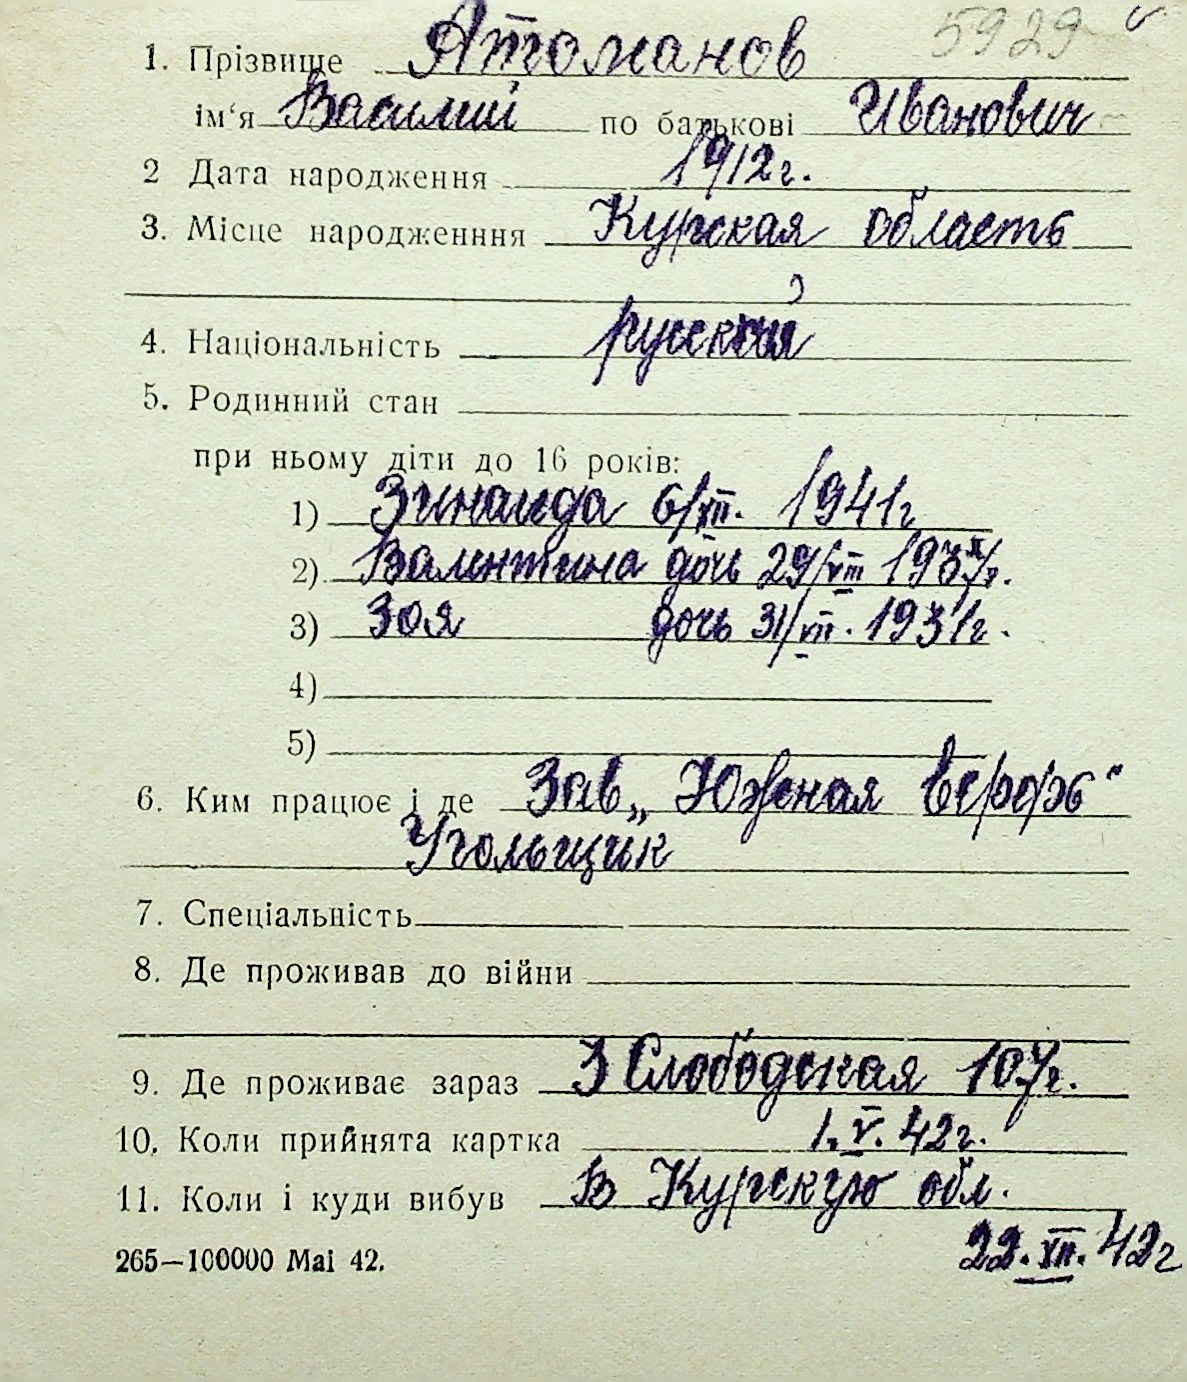 5929
1. Прізвище Атоманов
ім'я Василий по батькові Иванович
2 Дата народження 1912г.
3. Місце народженння Курская область
4. Національність русский
5. Родинний стан
при ньому діти до 16 років:
1) Зинаида 6/XII. 1941г
2) Валентина дочь 29/VIII
3) Зоя дочь 31/VII. 1931г.
4)
5)
6. Ким працює і де Зав „Южная верфь"
Угольщик
7. Спеціальність
8. Де проживав до війни
9. Де проживає зараз 3 Слободская 107г.
10. Коли прийнята картка 1.V.42г.
11. Коли і куди вибув В Курскую обл.
265—100000 Маі 42. 22.XII.42г